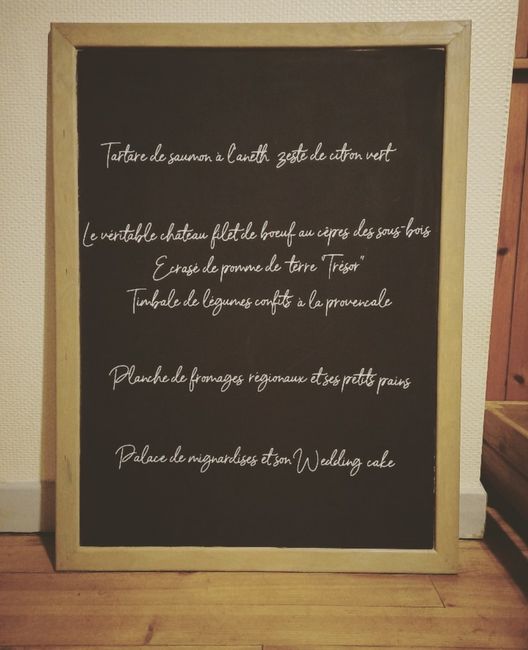 Tartare de saumon à l'aneth zeste de citron vert
Le véritable château filet de boeuf au cèpes des sous-bois
Ecrasé de pomme de terre "Trésor"
Timbale de légumes confits à la provencale
Planche de fromages régionaux et ses petits pains
Palace de mignardises et son Wedding cake